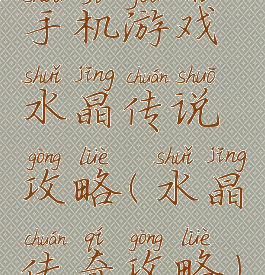 手机游戏
shuǐ jīng chuán shuō
水晶传说
gōng lüè shuǐ jīng
攻略(水晶
chuán qí gōng lüè
传奇攻略)